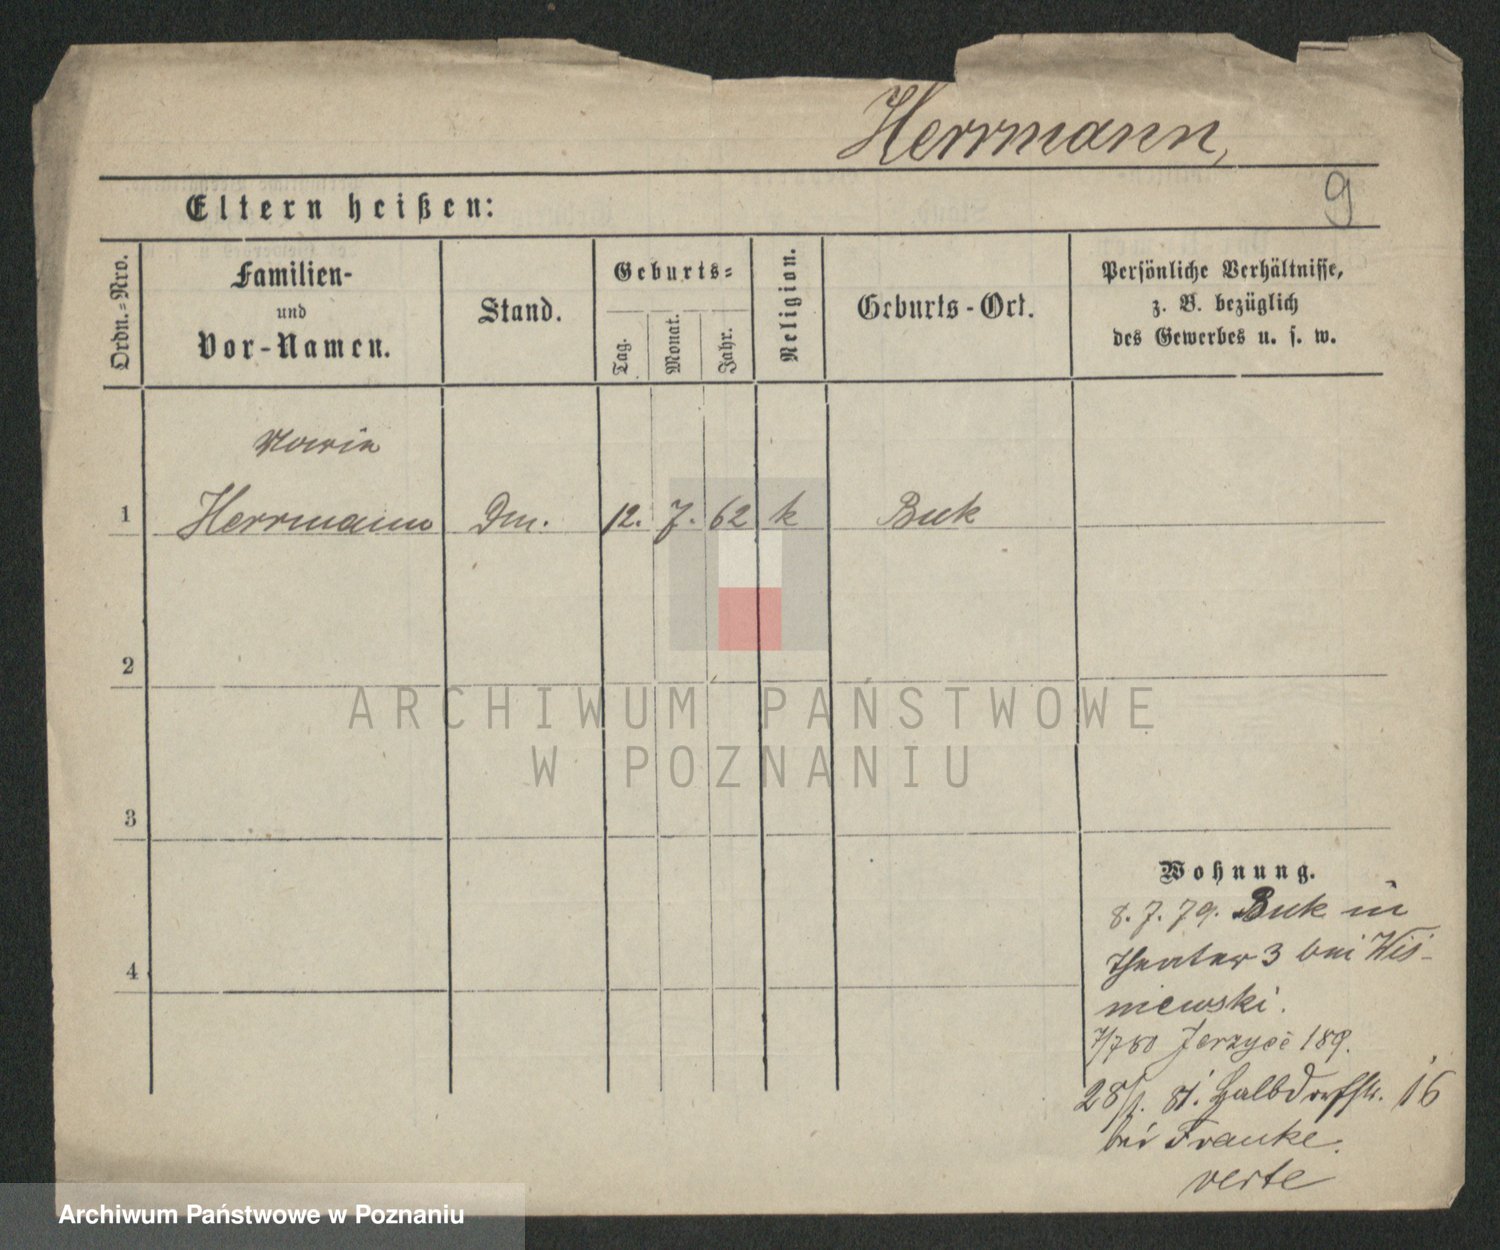 Herrmann,
9
Eltern heißen:
Ordn.=Nro.
Familien-
und
Vor-Namen.
Stand.
Geburts=
Tag.
Monat.
Jahr.
Religion.
Geburts-Ort.
Persönliche Verhältnisse,
z. B. bezüglich
des Gewerbes u. s. w.
Marie
1 Herrmann Dm. 12. 7. 62 k Buk
2
ARCHIWUM PAŃSTWOWE
W POZNANIU
3
Wohnung.
8. 7. 79. Buk in
Theater 3 bei Wis-
niewski.
4
7/7 80 Jerzyce 189.
28/1. 81. Halbdorfstr. 16
bei Franke.
verte
Archiwum Państwowe w Poznaniu